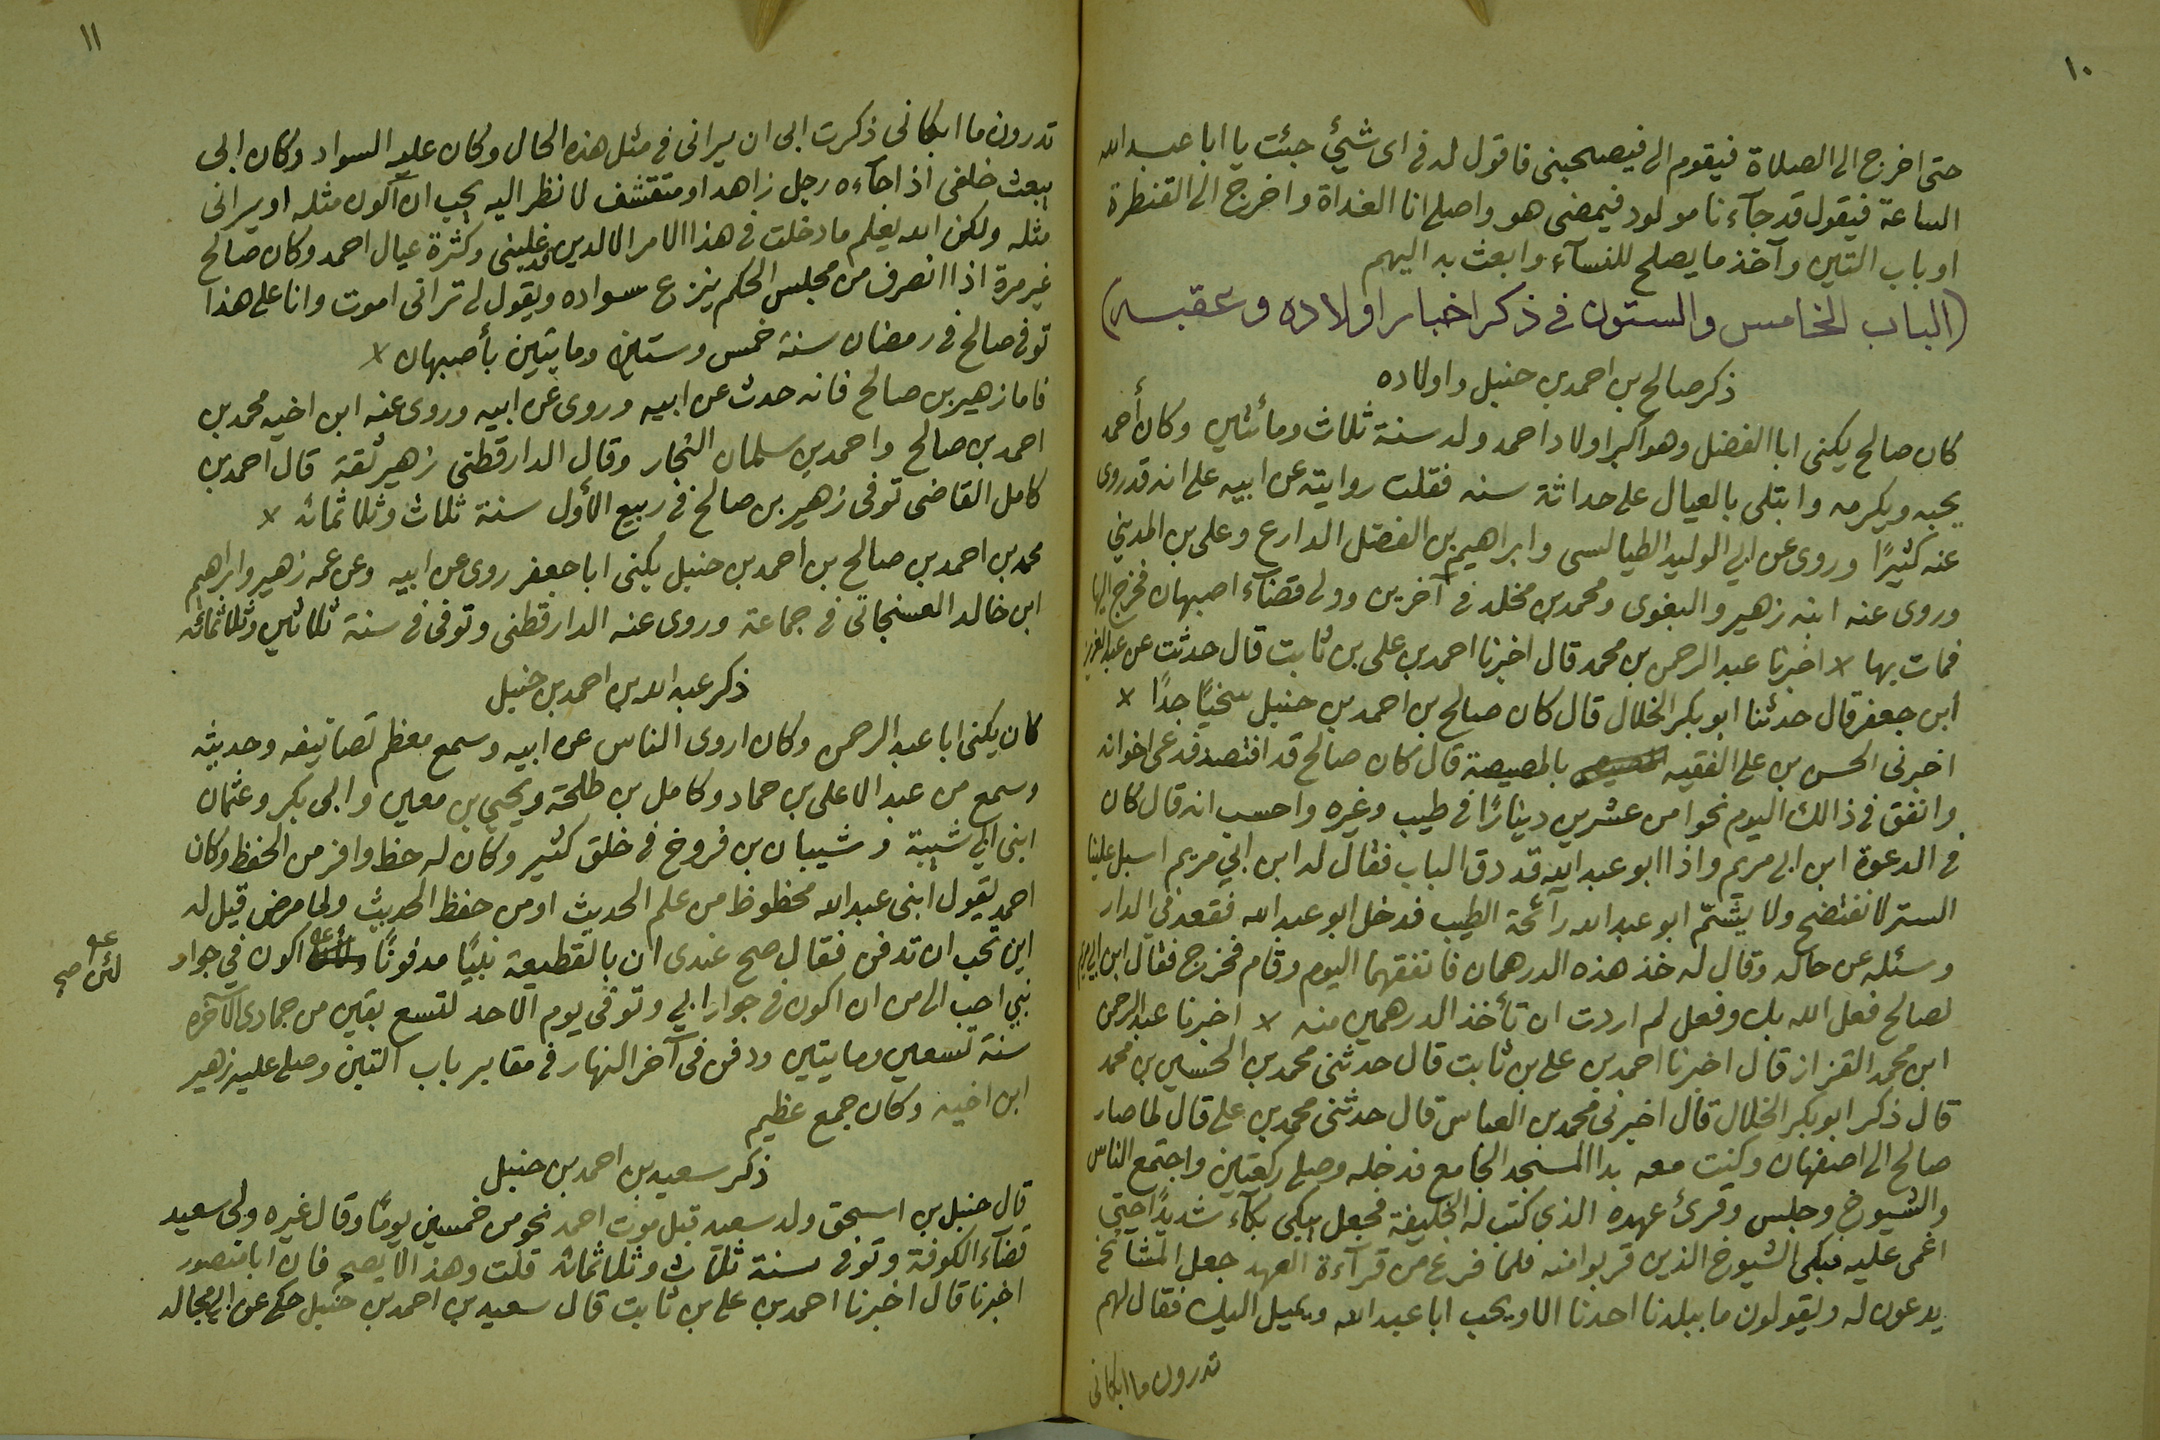 ١٠
حتى اخرج الى الصلاة فيقوم الى فيصحبنى فاقول له فى اى شيئ جئت يا ابا عبد الله
الساعة فيقول قد جآءنا مولود فيمضى هو واصلى انا الغداة واخرج الى القنطرة
او باب التين وآخذ ما يصلح للنسآء وابعث به اليهم
(الباب الخامس والستون فى ذكر اخبار اولاده وعقبه)
ذكر صالح بن احمد بن حنبل واولاده
كان صالح يكنى ابا الفضل وهو اكبر اولاد احمد ولد سنة ثلاث ومائتين وكان أحمد
يحبه ويكرمه وابتلى بالعيال على حداثة سنه فقلت روايته عن ابيه على انه قد روى
عنه كثيرًا وروى عن ابي الوليد الطيالسى وابراهيم بن الفضل الدارع وعلى بن المديني
وروى عنه ابنه زهير والبغوى ومحمد بن مخلد فى آخرين وولى قضآء اصبهان فخرج اليها
فمات بها × اخبرنا عبد الرحمن بن محمد قال اخبرنا احمد بن على بن ثابت قال حدثت عن عبد العزيز
أبن جعفر قال حدثنا ابو بكر الخلال قال كان صالح بن احمد بن حنبل سخيًا جدًا ×
اخبرنى الحسن بن على الفقيه بالمصيصة قال كان صالح قد افتصد فدعى اخوانه
وانفق فى ذالك اليوم نحوا من عشرين دينارًا فى طيب وغيره واحسب انه قال كان
فى الدعوة ابن ابى مريم واذا ابو عبد الله قد دق الباب فقال له ابن ابي مريم اسبل علينا
الستر لا نفتضح ولا يشتمّ ابو عبد الله رآئحة الطيب فدخل ابو عبد الله فقعد في الدار
وسئله عن حاله وقال له خذ هذه الدرهمان فانفقهما اليوم وقام فخرج فقال ابن ابى مريم
لصالح فعل الله بك وفعل لم اردت ان تأخذ الدرهمين منه × اخبرنا عبد الرحمن
ابن محمد القزاز قال اخبرنا احمد بن على بن ثابت قال حدثنى محمد بن الحسين بن محمد
قال ذكر ابو بكر الخلال قال اخبرنى محمد بن العباس قال حدثنى محمد بن على قال لما صار
صالح الى اصفهان وكنت معه بدا المسجد الجامع فدخله وصلى ركعتين واجتمع الناس
والشيوخ وجلس وقرئ عهده الذي كتب له الخليفة فجعل يبكى بكآء شديدًا حتي
اغمى عليه فبكى الشيوخ الذين قربوا منه فلما فرغ من قرآءة العهد جعل المشآئخ
يدعون له ويقولون ما ببلدنا احدنا الا ويحب ابا عبد الله ويميل اليك فقال لهم
تدرون ما ابكانى
١١
تدرون ما ابكانى ذكرت ابى ان يرانى فى مثل هذه الحال وكان عليه السواد وكان ابى
يبعث خلفى اذا جآءه رجل زاهد او متقشف لانظر اليه يحب ان اكون مثله او يرانى
مثله ولكن الله يعلم ما دخلت فى هذا الامر الا لدين قد غلبنى وكثرة عيال احمد وكان صالح
غير مرة اذا انصرف من مجلس الحكم ينزع سواده ويقول لى ترانى اموت وانا على هذا
توفى صالح فى رمضان سنة خمس وستين ومايتين بأصبهان ×
فاما زهير بن صالح فانه حدث عن ابيه وروى عن ابيه وروى عنه ابن اخيه محمد بن
احمد بن صالح واحمد بن سلمان النجار وقال الدارقطنى زهير ثقة قال احمد بن
كامل القاضى توفى زهير بن صالح فى ربيع الأول سنة ثلاث وثلاثمائه ×
محمد بن احمد بن صالح بن احمد بن حنبل يكنى ابا جعفر روى عن ابيه وعن عمه زهير وابراهيم
ابن خالد الهسنجانى فى جماعة وروى عنه الدارقطنى وتوفى فى سنة ثلاثين وثلاثمائه
ذكر عبد الله بن احمد بن حنبل
كان يكنى ابا عبد الرحمن وكان اروى الناس عن ابيه وسمع معظم تصانيفه وحديثه
وسمع من عبد الاعلى بن حماد وكامل بن طلحة ويحيي بن معين وابى بكر وعثمان
ابنى ابي شيبة وشيبان بن فروخ فى خلق كثير وكان له حظ وافر من الحفظ وكان
احمد يقول ابنى عبد الله محظوظ من علم الحديث او من حفظ الحديث ولما مرض قيل له
اين تحب ان تدفن فقال صح عندى ان بالقطيعة نبيًا مدفونًا اكون في جوار
لئن اصح
نبي احب الى من ان اكون فى جوار ابي وتوفى يوم الاحد لتسع بقين من جمادى الآخره
سنة تسعين ومايتين ودفن فى آخر النهار فى مقابر باب التين وصلى عليه زهير
ابن اخيه وكان جمع عظيم
ذكر سعيد بن احمد بن حنبل
قال حنبل بن اسحق ولد سعيد قبل موت احمد نحو من خمسين يومًا وقال غيره ولى سعيد
قضآء الكوفة وتوفى سنة ثلاث وثلثمائه قلت وهذا لا يصح فان ابا منصور
اخبرنا قال اخبرنا احمد بن على بن ثابت قال سعيد بن احمد بن حنبل حكى عن ابى مجالد